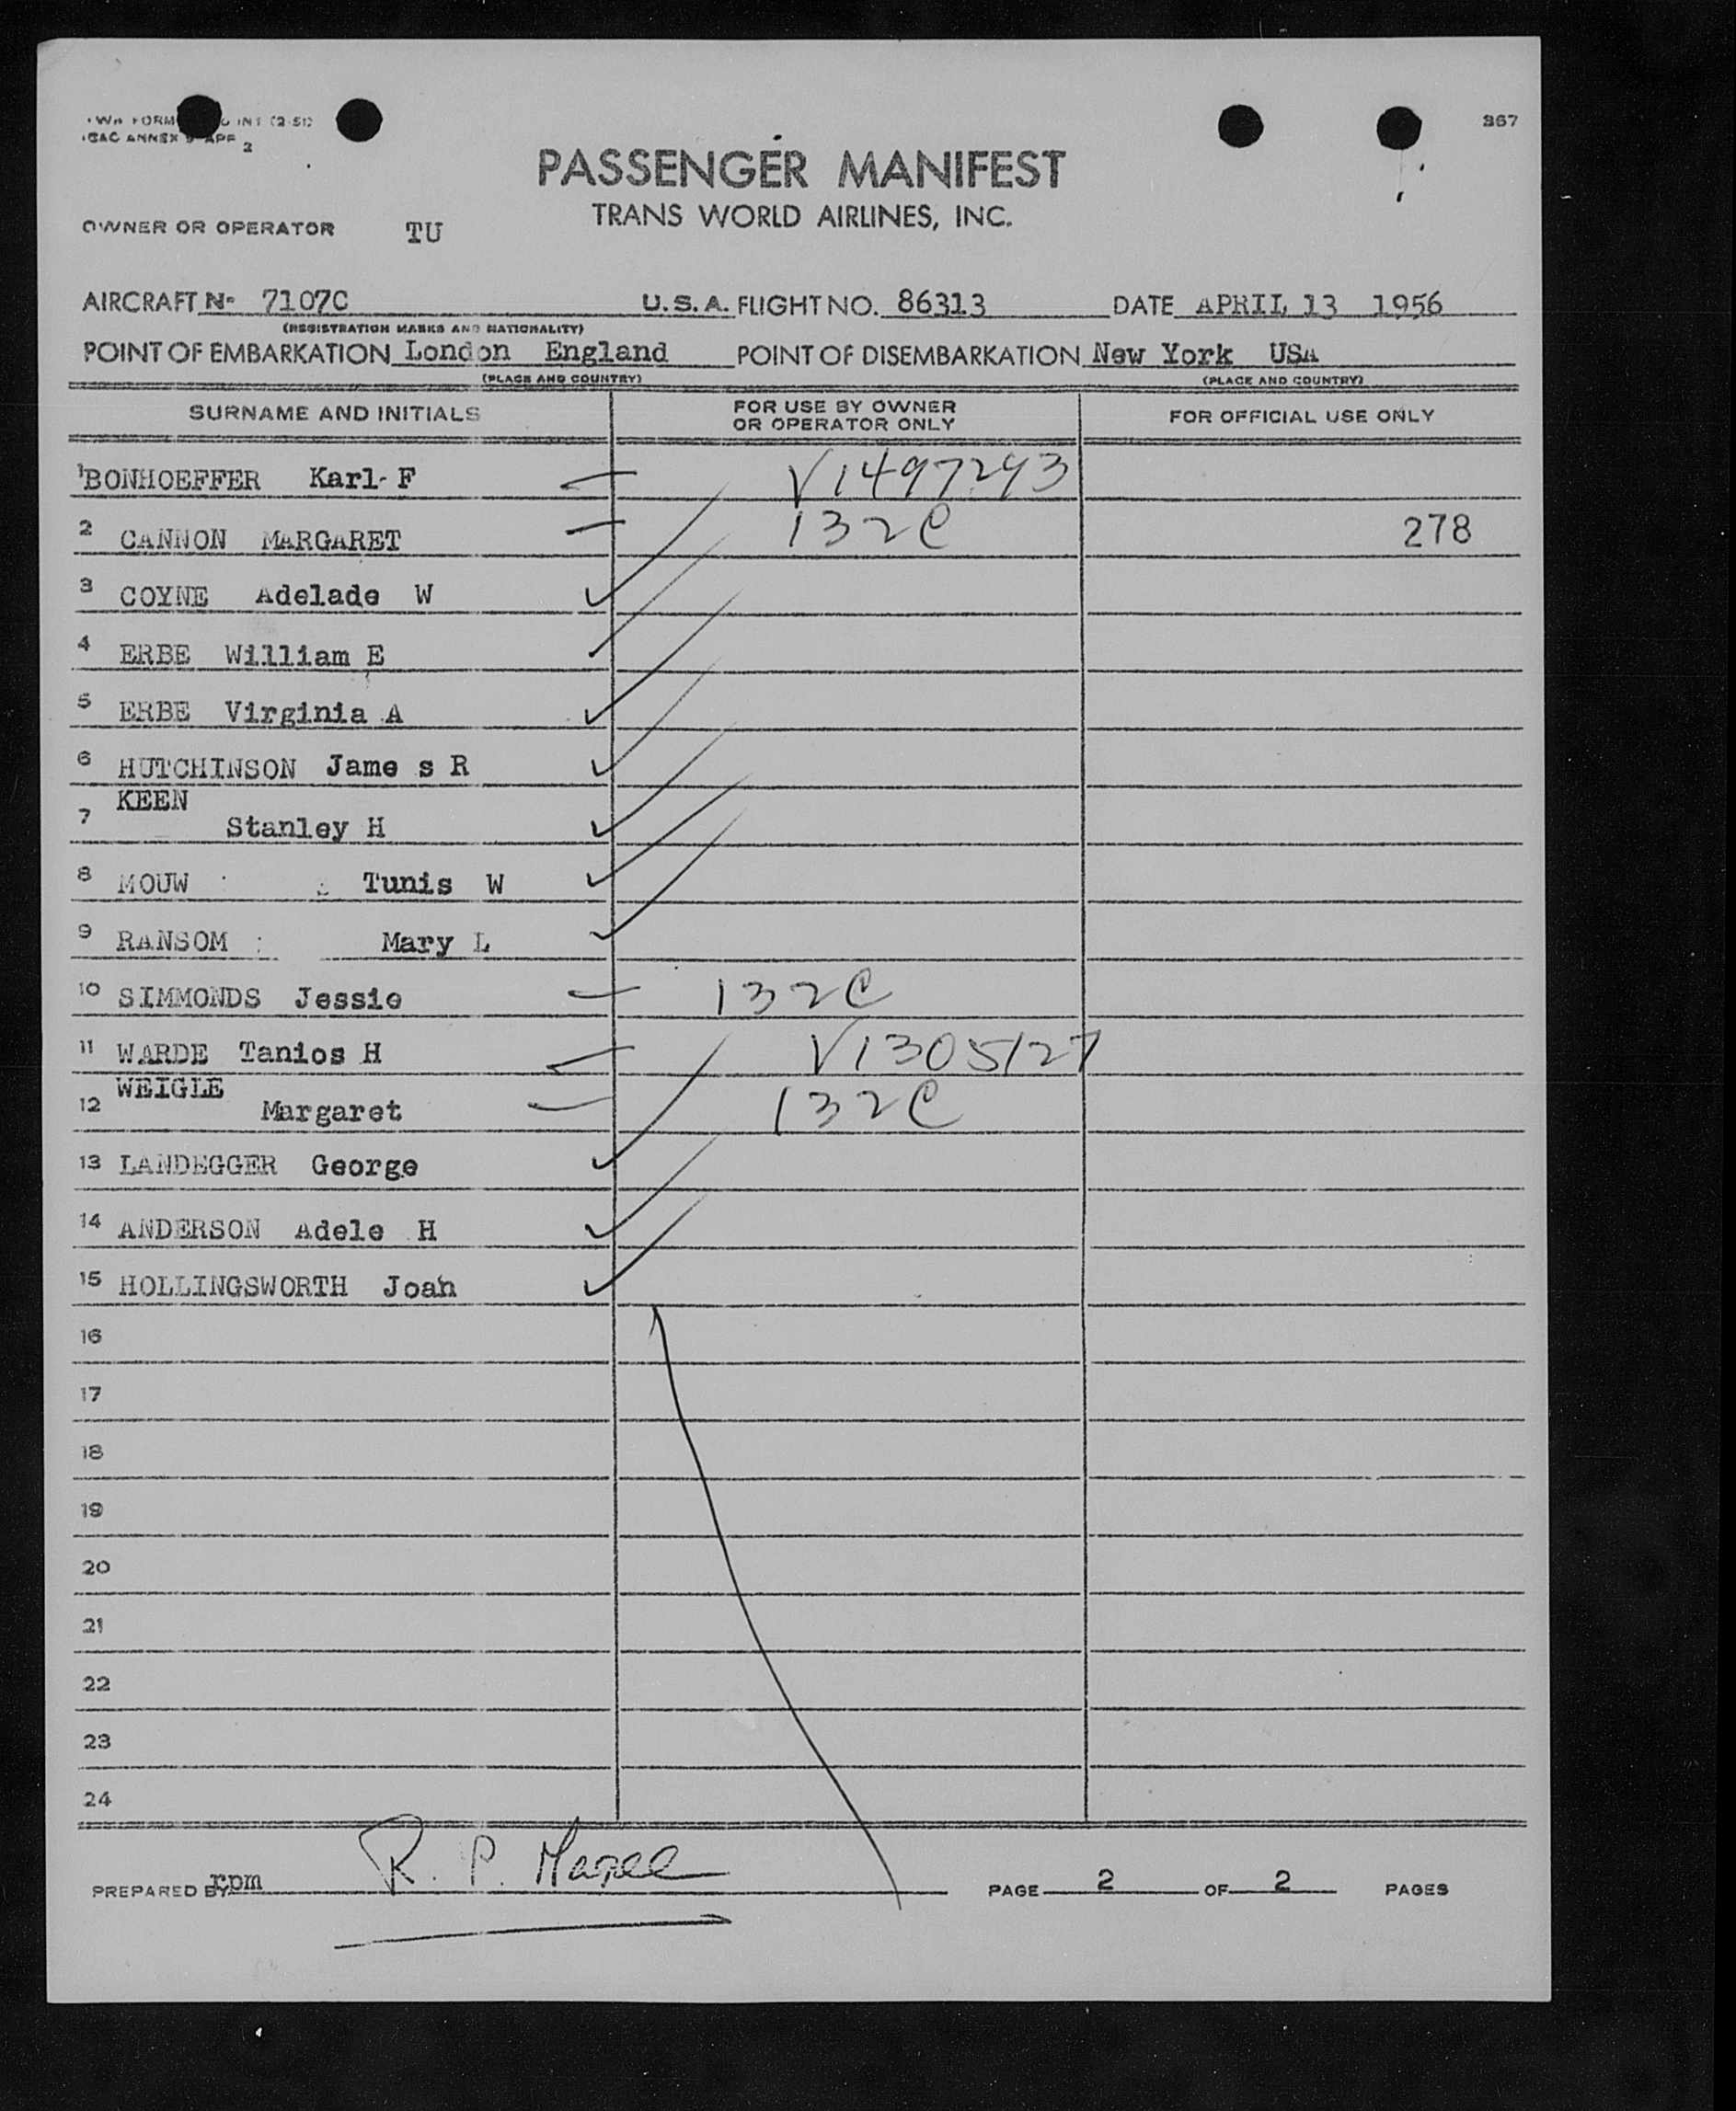 267
ICAO ANNEX 9 APP 2
PASSENGER MANIFEST
TRANS WORLD AIRLINES, INC.
OWNER OR OPERATOR TU
AIRCRAFT N- 7107C U.S.A. FLIGHT NO. 86313 DATE APRIL 13 1956
(REGISTRATION MARKS AND NATIONALITY)
POINT OF EMBARKATION London England POINT OF DISEMBARKATION New York USA
(PLACE AND COUNTRY) (PLACE AND COUNTRY)
SURNAME AND INITIALS FOR USE BY OWNER OR OPERATOR ONLY FOR OFFICIAL USE ONLY
1 BONHOEFFER Karl-F V1497293
2 CANNON MARGARET 132C 278
3 COYNE Adelade W
4 ERBE William E
5 ERBE Virginia A
6 HUTCHINSON Jame s R
7 KEEN Stanley H
8 MOUW Tunis W
9 RANSOM Mary L
10 SIMMONDS Jessie 132C
11 WARDE Tanios H V1305127
12 WEIGLE Margaret 132C
13 LANDEGGER George
14 ANDERSON Adele H
15 HOLLINGSWORTH Joan
16
17
18
19
20
21
22
23
24
PREPARED BY rpm R. P. PAGE 2 OF 2 PAGES